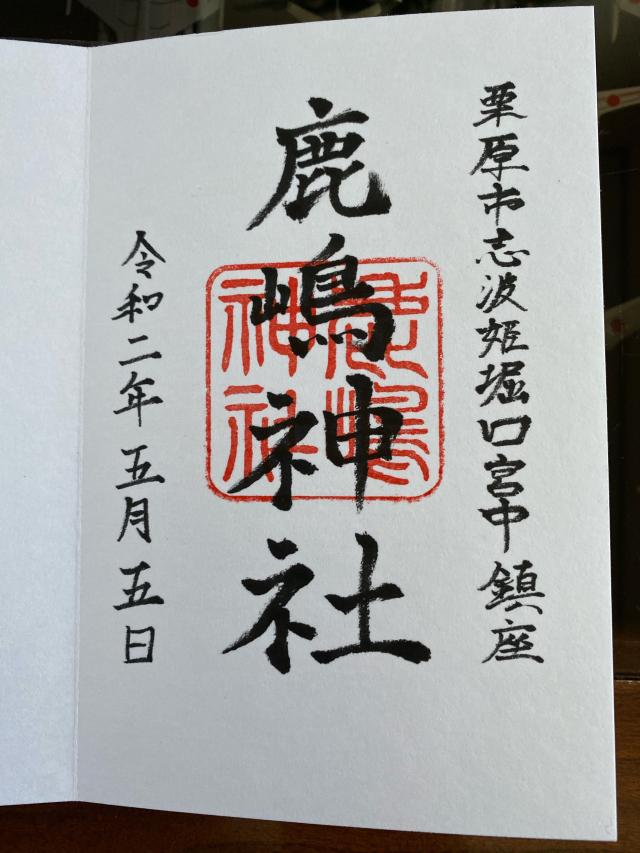 栗原市志波姫堀口宮中鎮座
鹿嶋神社
令和二年五月五日
鹿嶋神社